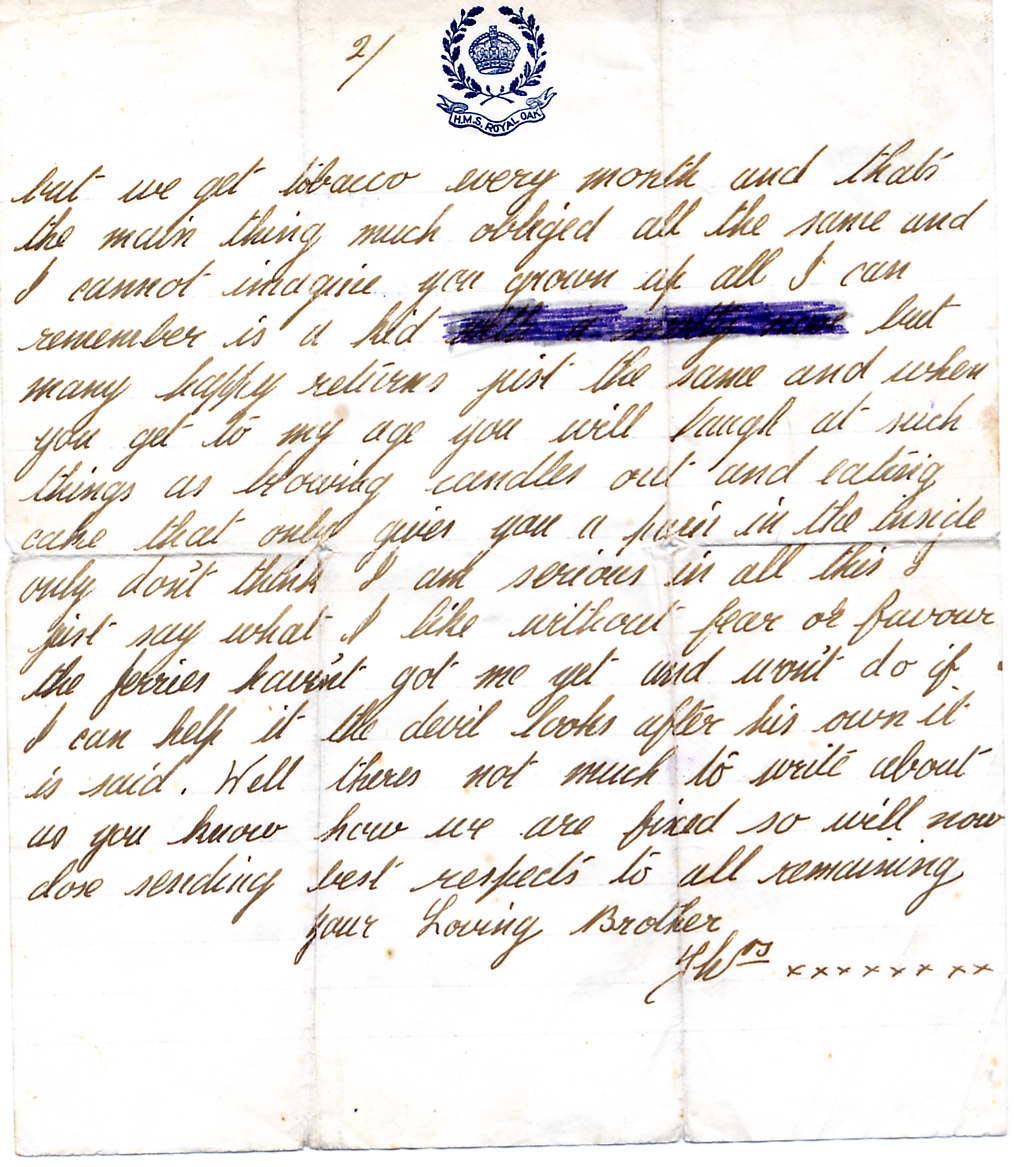 2/
H.M.S. ROYAL OAK
but we get tobacco every month and that's
the main thing much obliged all the same and
I cannot imagine you grown up all I can
remember is a kid but
many happy returns just the same and when
you get to my age you will laugh at such
things as blowing candles out and eating
cake that only gives you a pain in the inside
only don't think I am serious in all this I
just say what I like without fear or favour
the jerries haven't got me yet and won't do if
I can help it the devil looks after his own it
is said. Well theres not much to write about
as you know how we are fixed so will now
close sending best respects to all remaining
your Loving Brother
Thos xxxxxxxxx